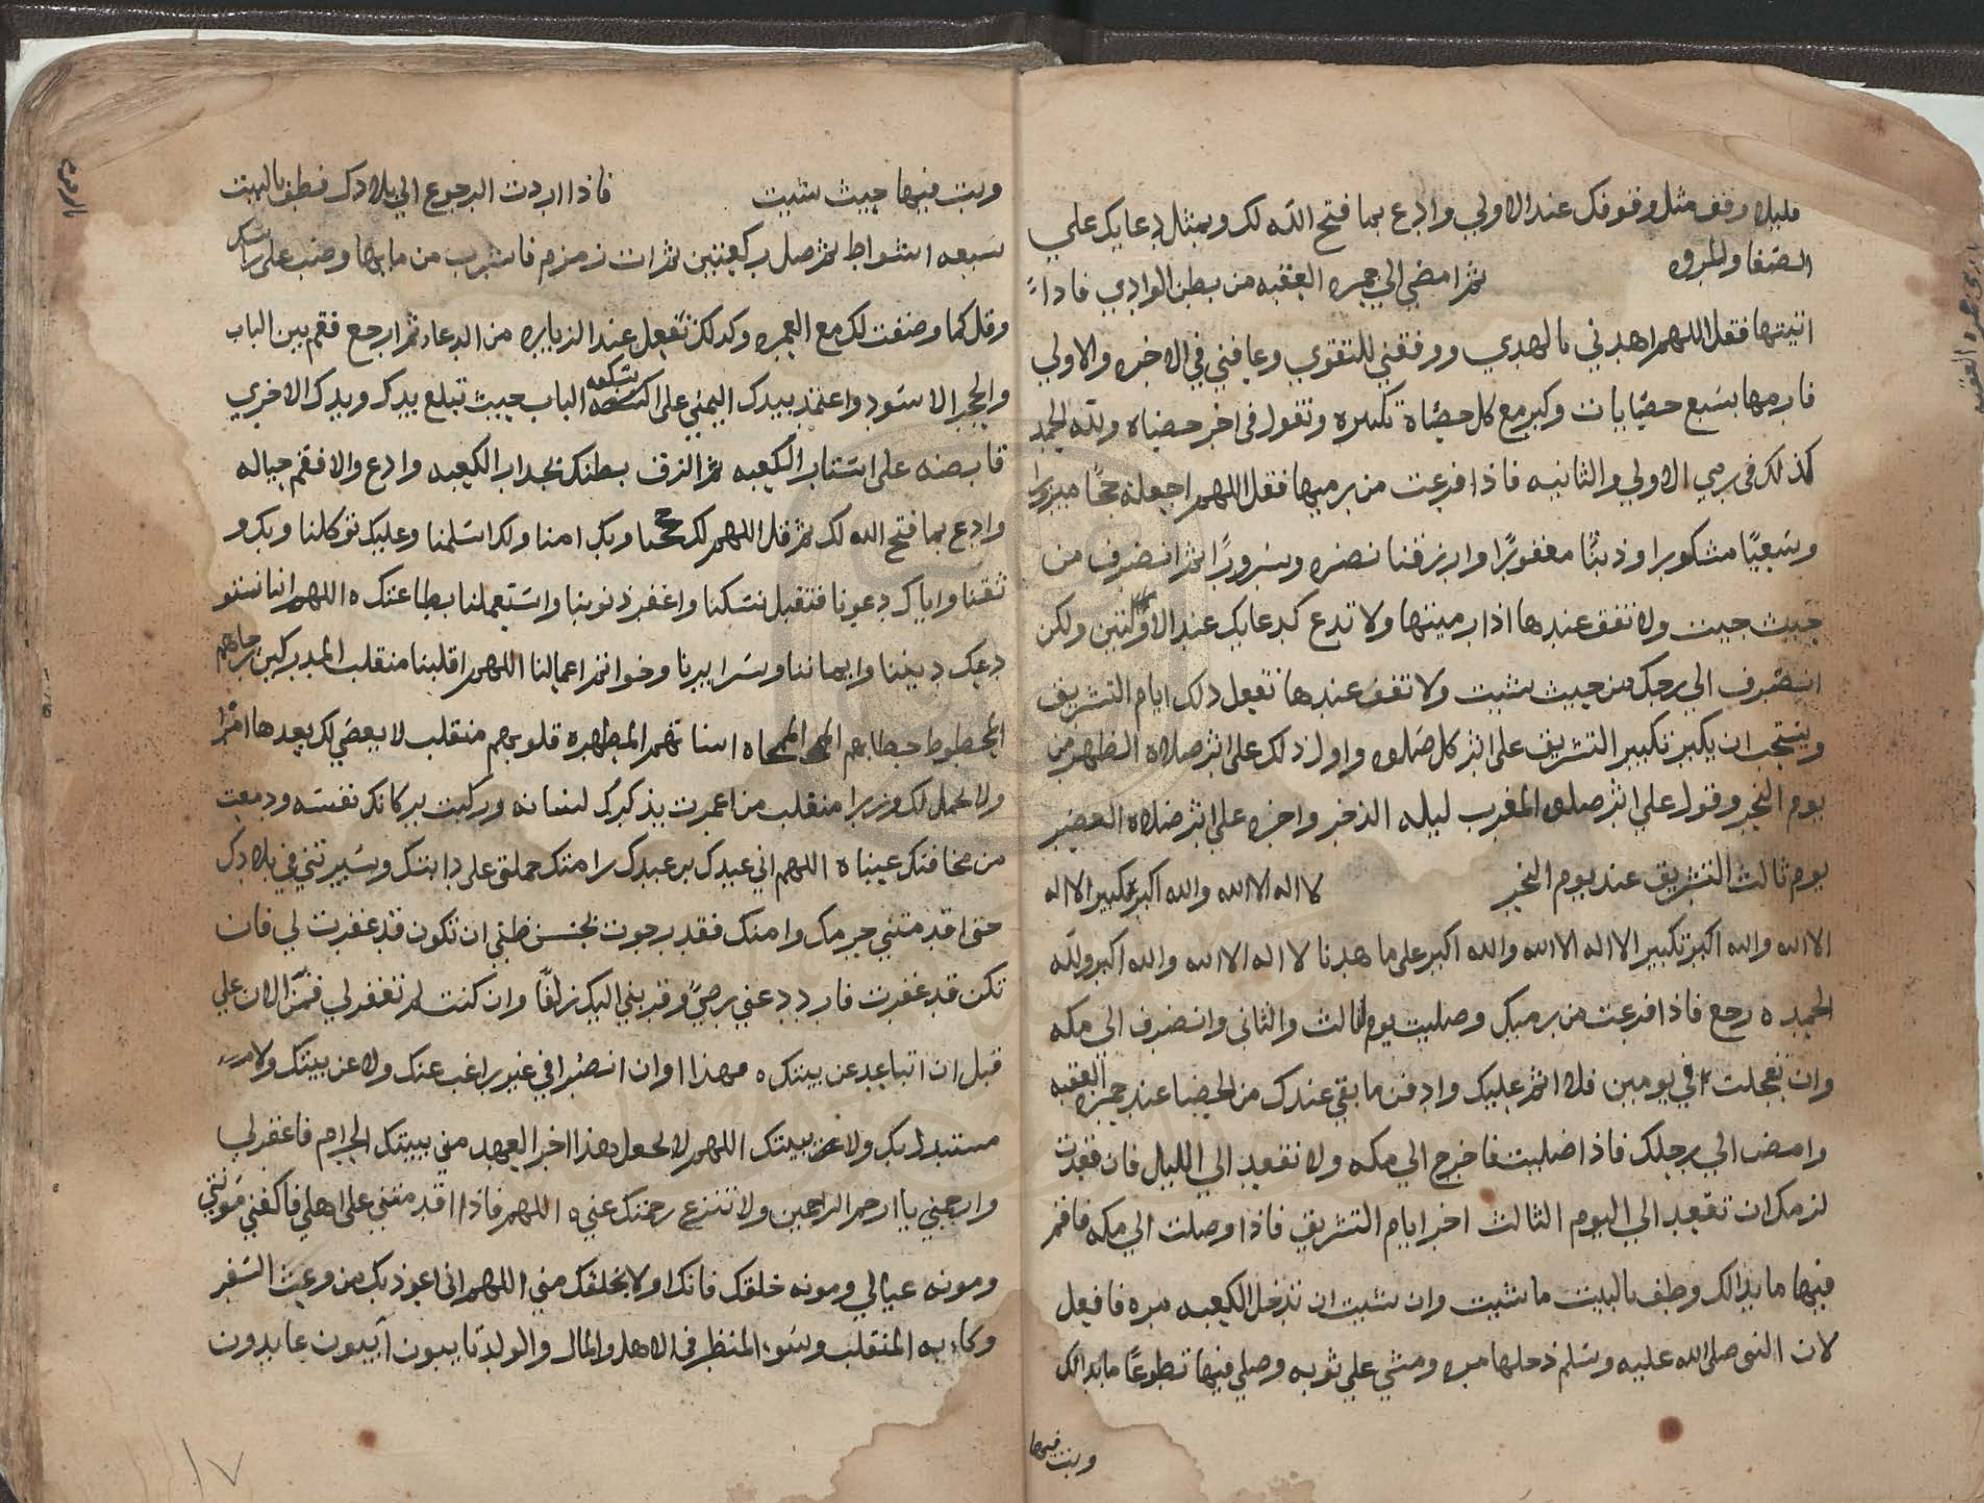 قليلا وقف مثل وقوفك عند الاولي وادع بما فتح الله لك وبمثل دعايك علي
الصفا والمروه ثم امضي الي جمره العقبه من بطن الوادي فاذا
اتيتها فقل اللهم اهدني بالهدي ووفقني للتقوي وعافني في الاخره والاولي
فارمها بسبع حصايات وكبر مع كل حصاة تكبيره وتقول في اخر حصاه ولله الحمد
كذلك في رمي الاولي والثانيه فاذا فرغت من رميها فقل اللهم اجعله حجا مبرورا
وسعيا مشكورا وذنبا مغفورا وارزقنا نضره وسرورا ثم انصرف من
حيث جيت ولا تقف عندها اذا رميتها ولا تدع كدعايك عند الاولتين ولكن
انصرف الي رحلك من حيث شيت ولا تقف عندها تفعل ذلك ايام التشريق
ويستحب ان يكبر تكبير التشريق على اثر كل صلوه واول ذلك على اثر صلاه الظهر من
يوم النحر وقول علي اثر صلوه المغرب ليله النحر واخره علي اثر صلاه العصر
يوم ثالث التشريق عند يوم النحر لا اله الا الله والله اكبر تكبير الا اله
الا الله والله اكبر تكبير الا اله الا الله والله اكبر على ما هدنا لا اله الا الله والله اكبر ولله
الحمد ه رجع فاذا فرغت من رميك وصليت يوم ثالث والثاني وانصرف الى مكه
وان تعجلت في يومين فلا اثم عليك وادفن ما بقي عندك من الحصا عند جمره العقبه
وامض الي رحلك فاذا صليت فاخرج الي مكه ولا تقعد الي الليل فان قعدت
لزمك ان تقعد الي اليوم الثالث اخر ايام التشريق فاذا وصلت الي مكه فاقم
فيها ما بدا لك وطف بالبيت ما شيت وان شيت ان تدخل الكعبه مره فافعل
لان النبي صلى الله عليه وسلم دخلها مره ومشي علي ثوبه وصلي فيها تطوعا ما بدا لك
وبت فيها
وبت فيها حيث شيت فاذا اردت الرجوع الي بلادك فطف بالبيت
سبعه اشواط ثم صل ركعتين ثم ات زمزم فاشرب من مايها وصب على راسك
وقل كما وصفت لك مع العمره وكذلك تفعل عند الزياره من الدعا ثم ارجع فقم بين الباب
والحجر الاسود واعتمد بيدك اليمني على الباب حيث تبلغ يدك ويدك الاخري
قابضه على استار الكعبه ثم الزق بطنك بجدار الكعبه وادع والا فقم حياله
وادع بما فتح الله لك ثم قل اللهم لك حججنا وبك امنا ولك اسلمنا وعليك توكلنا وبك و
ثقنا واياك دعونا فتقبل نسكنا واغفر ذنوبنا واستعملنا بطاعتك ه اللهم انا نستو
دعك ديننا وايماننا وسرايرنا وخواتم اعمالنا اللهم اقلبنا منقلب المدركين رجاهم
المحطوط خطاياهم المطهره قلوبهم منقلب لا يعصي لك بعدها امرا
ولا يحمل لك وزرا منقلب من اعمرت بذكرك لسانه وزكيت بزكاتك نفسه ودمعت
من مخافتك عيناه ه اللهم اني عبدك بن عبدك بن امتك حملتني على دابتك وسيرتني في بلادك
حتى اقدمتني حرمك وامنك فقد رجوت بحسن ظني ان تكون قد غفرت لي فان
تكن قد غفرت فازدد عني رضي وقربني اليك زلفا وان كنت لم تغفر لي فمن الان علي
قبل ان اتباعد عن بيتك ه فهذا اوان انصرافي غير راغب عنك ولا عن بيتك ولا
مستبدل بك ولا عن بيتك اللهم لا تجعل هذا اخر العهد مني ببيتك الحرام فاغفر لي
وارحمني يا ارحم الراحمين ولا تنزع رحمتك عني ه اللهم فاذا اقدمتني على اهلي فاكفني مؤنتي
ومونه عيالي ومونه خلقك فانك اولا بخلقك مني اللهم اني اعوذ بك من وعث السفر
وكابه المنقلب وسوء المنظر في الاهل والمال والولد تايبون آيبون عابدون
١٧